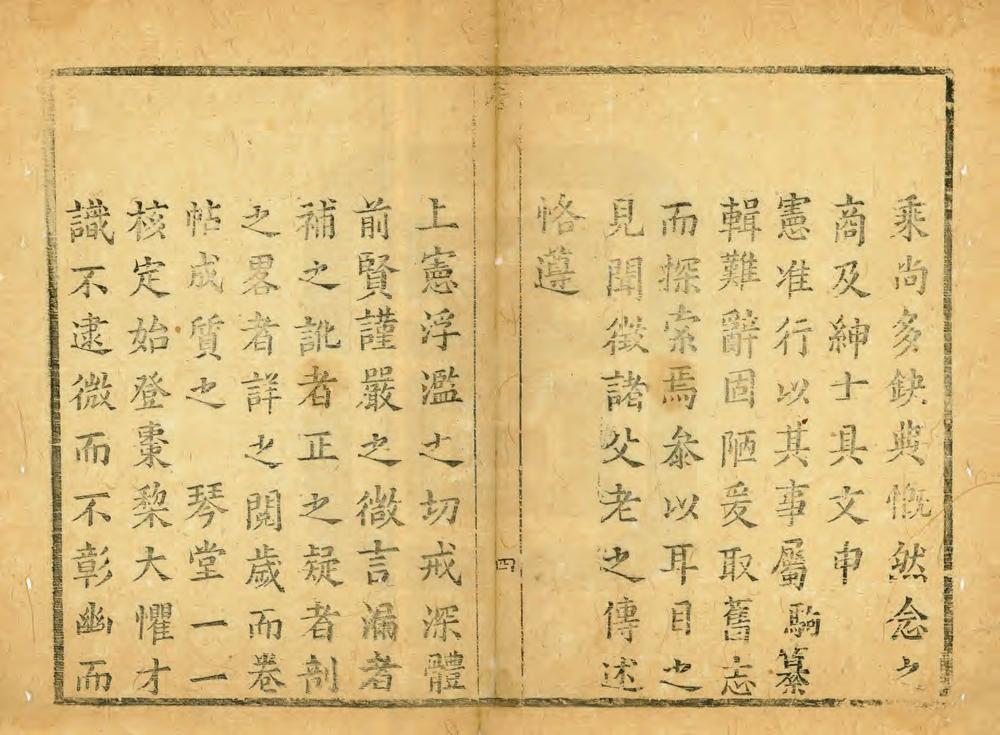 乘尚多缺典慨然念之
商及紳士具文申
憲准行以其事屬駒纂
輯難辭固陋爰取舊志
而探索焉叅以耳目之
見聞徵諸父老之傳述
恪遵
四
上憲浮濫之切戒深體
前賢謹嚴之微言漏者
補之訛者正之疑者剖
之畧者詳之閱歲而卷
帖成質之琴堂一一
核定始登棗棃大懼才
識不逮微而不彰幽而